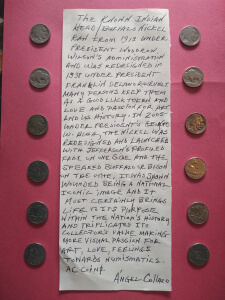 THE KNOWN INDIAN
HEAD/BUFFALO NICKEL
RAN FROM 1913 UNDER
PRESIDENT WOODROW
WILSON'S ADMINISTRATION
AND WAS REDESIGNED IN
1938 UNDER PRESIDENT
FRANKLIN DELANO ROOSEVELT
MANY PERSONS KEEP THEM
AS A GOOD LUCK TOKEN AND
LOVE AND PASSION FOR ART
AND ITS HISTORY. IN 2005
UNDER PRESIDENT GEORGE
W. BUSH, THE NICKEL WAS
REDESIGNED AND LAUNCHED
WITH JEFFERSON'S PROFILED
FACE ON ONE SIDE AND THE
BUFFALO OR BISON
IN THE OTHER. IT HAS
BEING A NATIONAL
ICONIC IMAGE AND IT
MOST CERTAINLY BRINGS
LIFE TO ITS PURPOSE
WITHIN THE NATION'S HISTORY
AND TRIPLICATED ITS
COLLECTOR'S VALUE MAKING
MORE VISUAL PASSION FOR
ART, LOVE, FEELINGS
TOWARDS NUMISMATICS
ANGEL COLLAZO